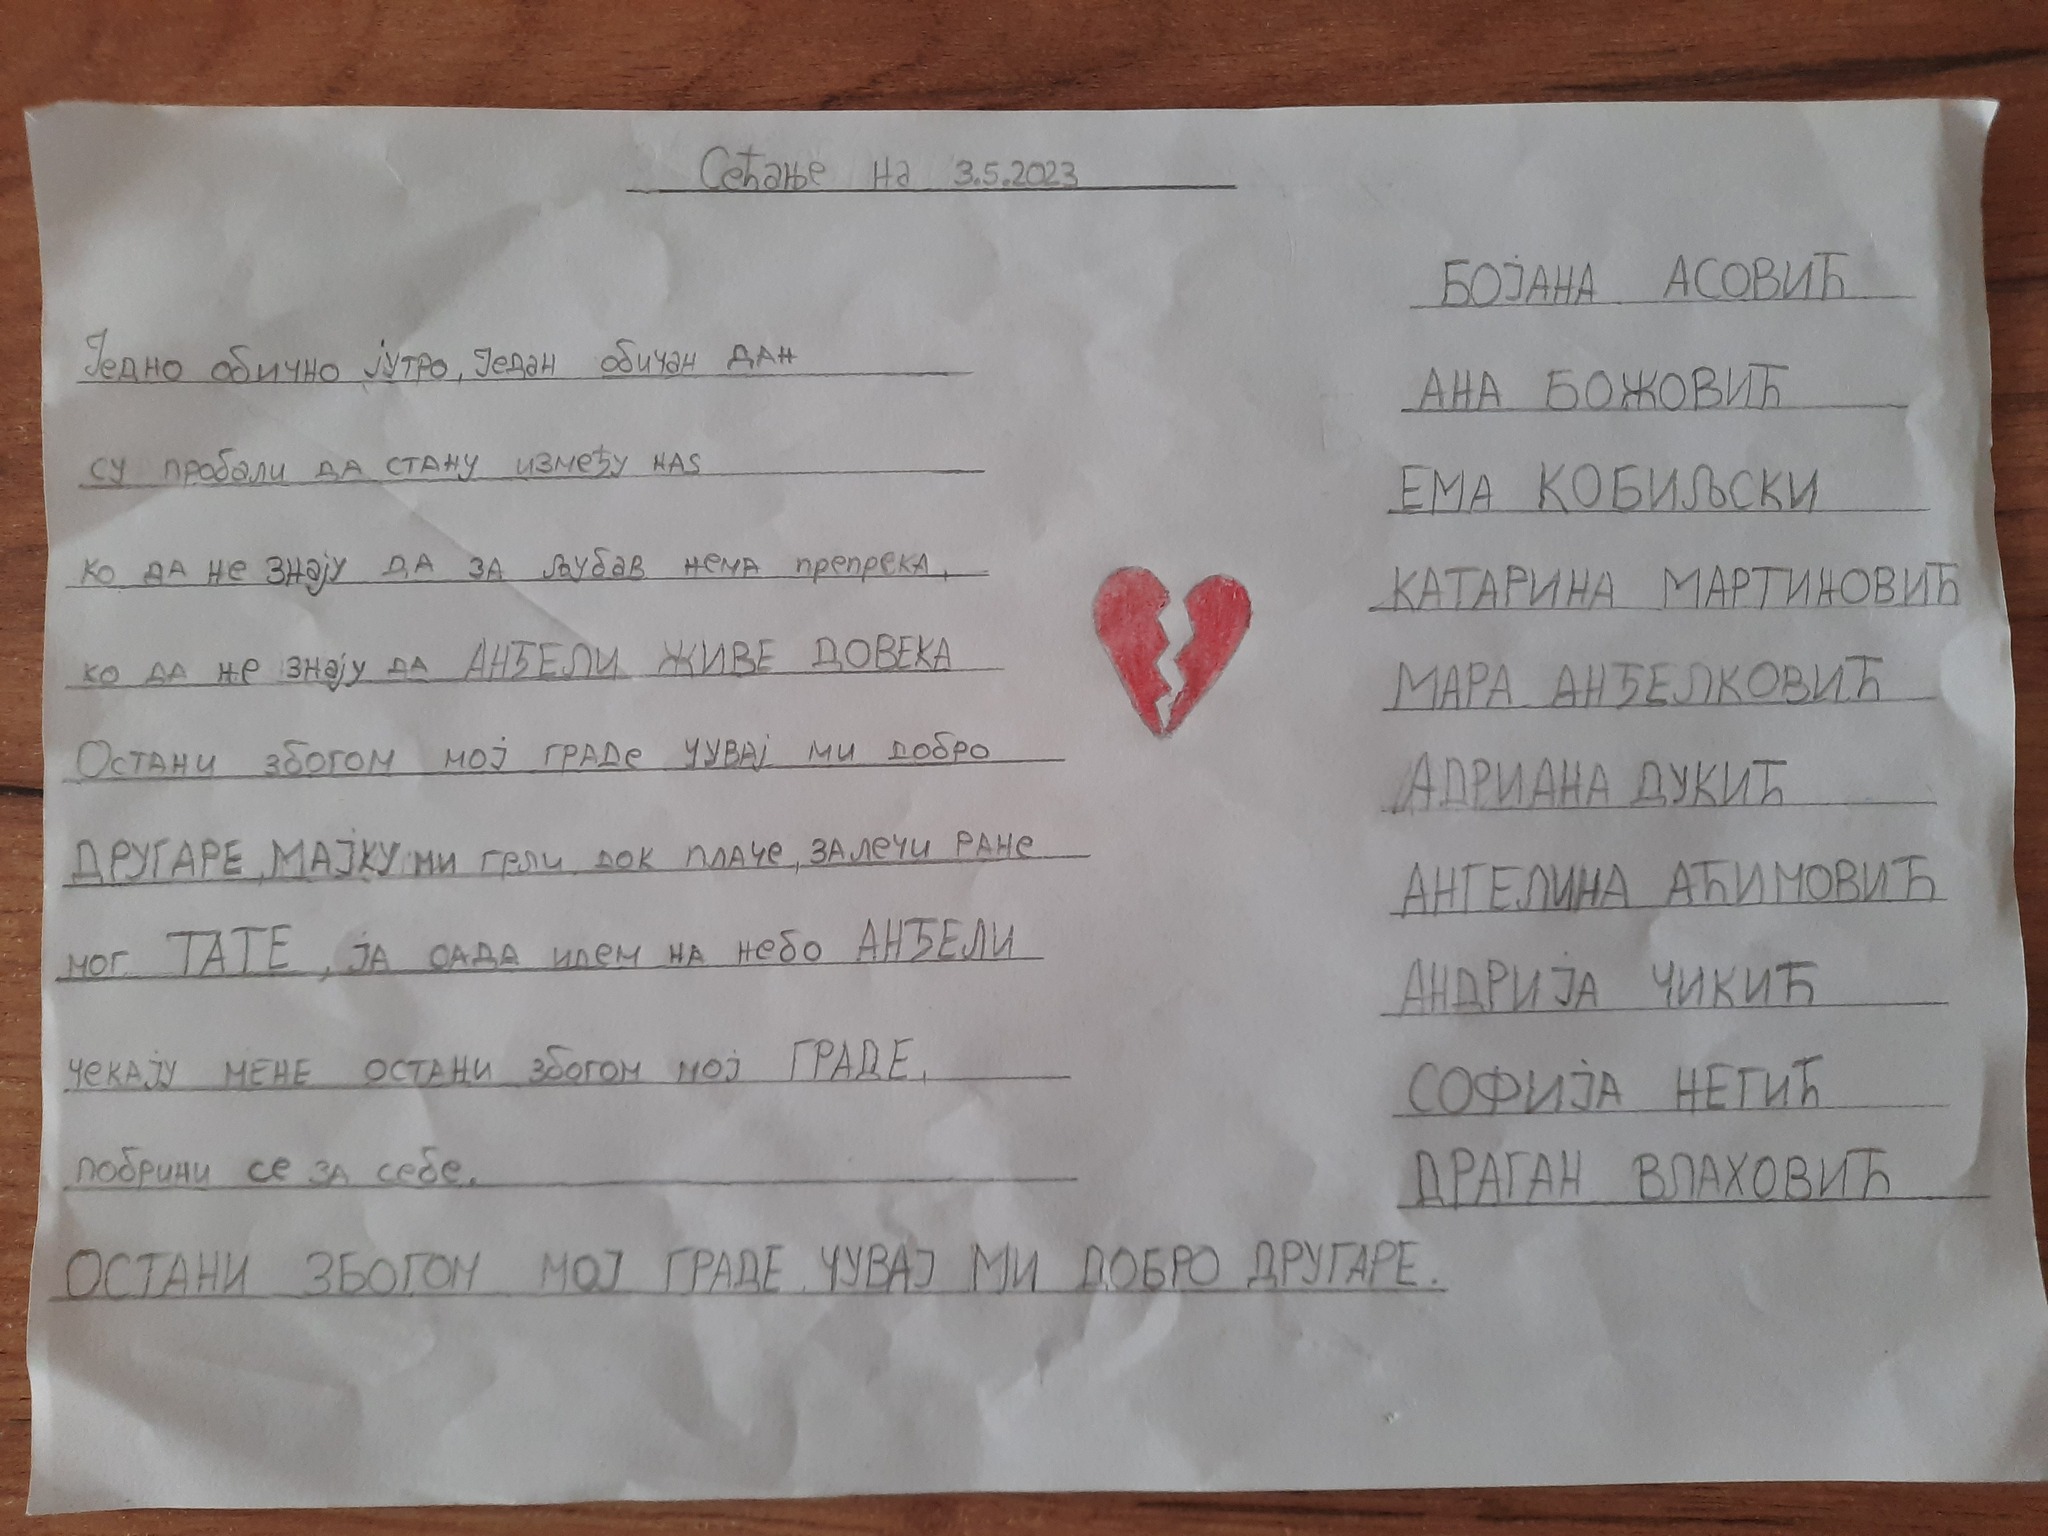 Сећање на 3.5.2023
Једно обично јутро, један обичан дан
су пробали да стану између наѕ
ко да не знају да за љубав нема препрека,
ко да не знају да АНЂЕЛИ ЖИВЕ ДОВЕКА
Остани збогом мој граде чувај ми добро
ДРУГАРЕ, МАЈКУ ми грли док плаче, залечи ране
мог ТАТЕ, ја сада идем на небо АНЂЕЛИ
чекају мене остани збогом мој ГРАДЕ,
побрини се за себе.
ОСТАНИ ЗБОГОМ МОЈ ГРАДЕ ЧУВАЈ МИ ДОБРО ДРУГАРЕ.
БОЈАНА АСОВИЋ
АНА БОЖОВИЋ
ЕМА КОБИЉСКИ
КАТАРИНА МАРТИНОВИЋ
МАРА АНЂЕЛКОВИЋ
АДРИАНА ДУКИЋ
АНГЕЛИНА АЋИМОВИЋ
АНДРИЈА ЧИКИЋ
СОФИЈА НЕГИЋ
ДРАГАН ВЛАХОВИЋ